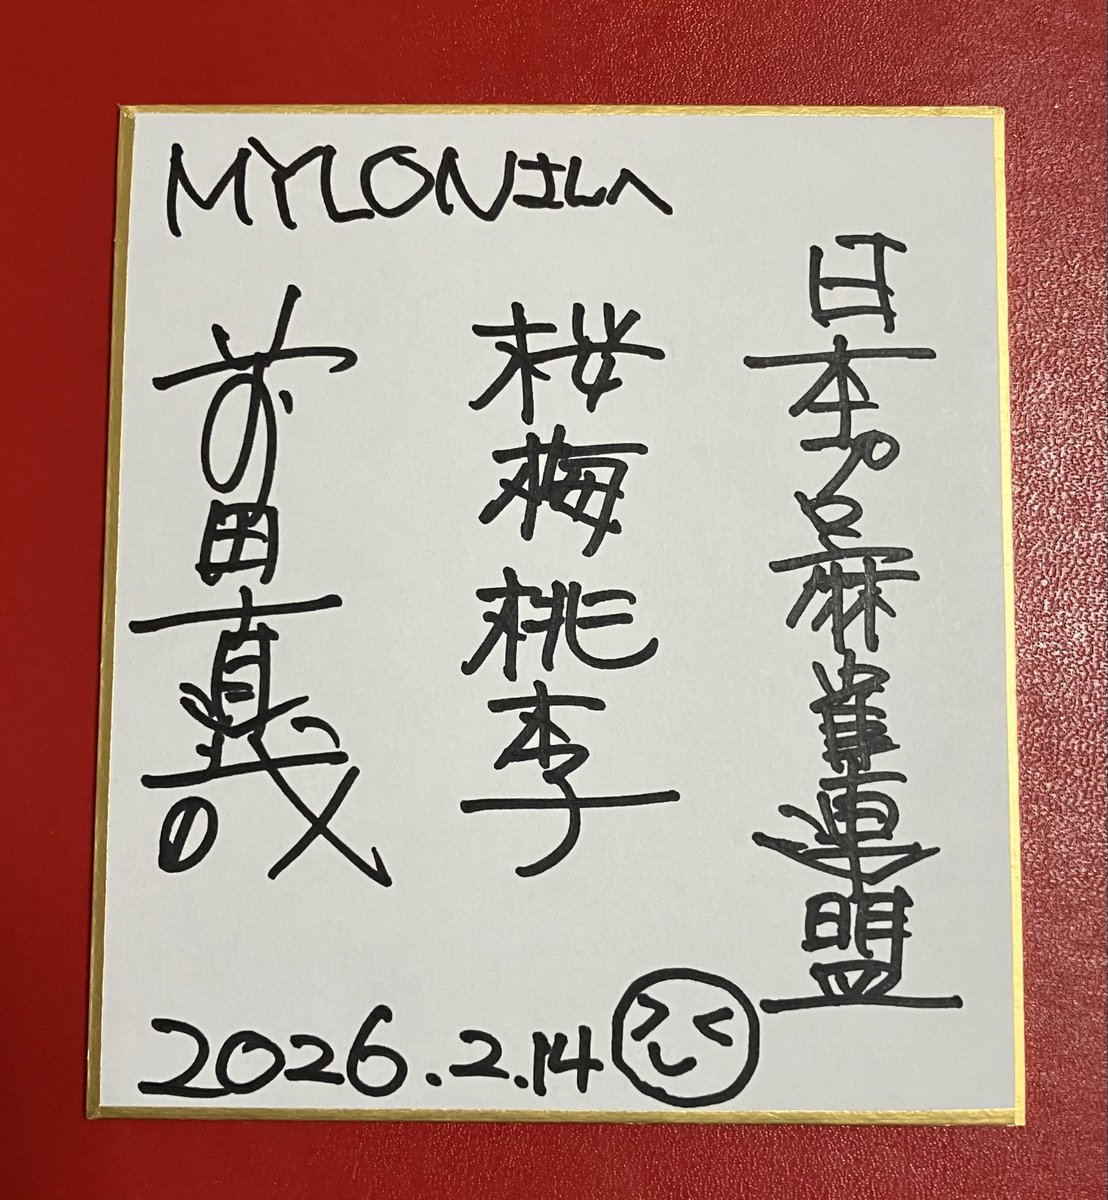 MYLONさんへ
日本プロ麻雀連盟
桜梅桃李
前田直哉
2026.2.14